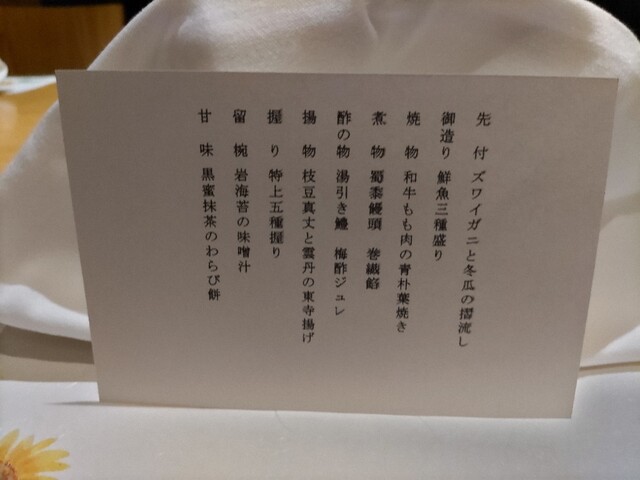 先付 ズワイガニと冬瓜の摺流し
御造り 鮮魚三種盛り
焼物 和牛もも肉の青朴葉焼き
煮物 蜀黍饅頭 巻繊餡
酢の物 湯引き鱧 梅酢ジュレ
揚物 枝豆真丈と雲丹の東寺揚げ
握り 特上五種握り
留椀 岩海苔の味噌汁
甘味 黒蜜抹茶のわらび餅